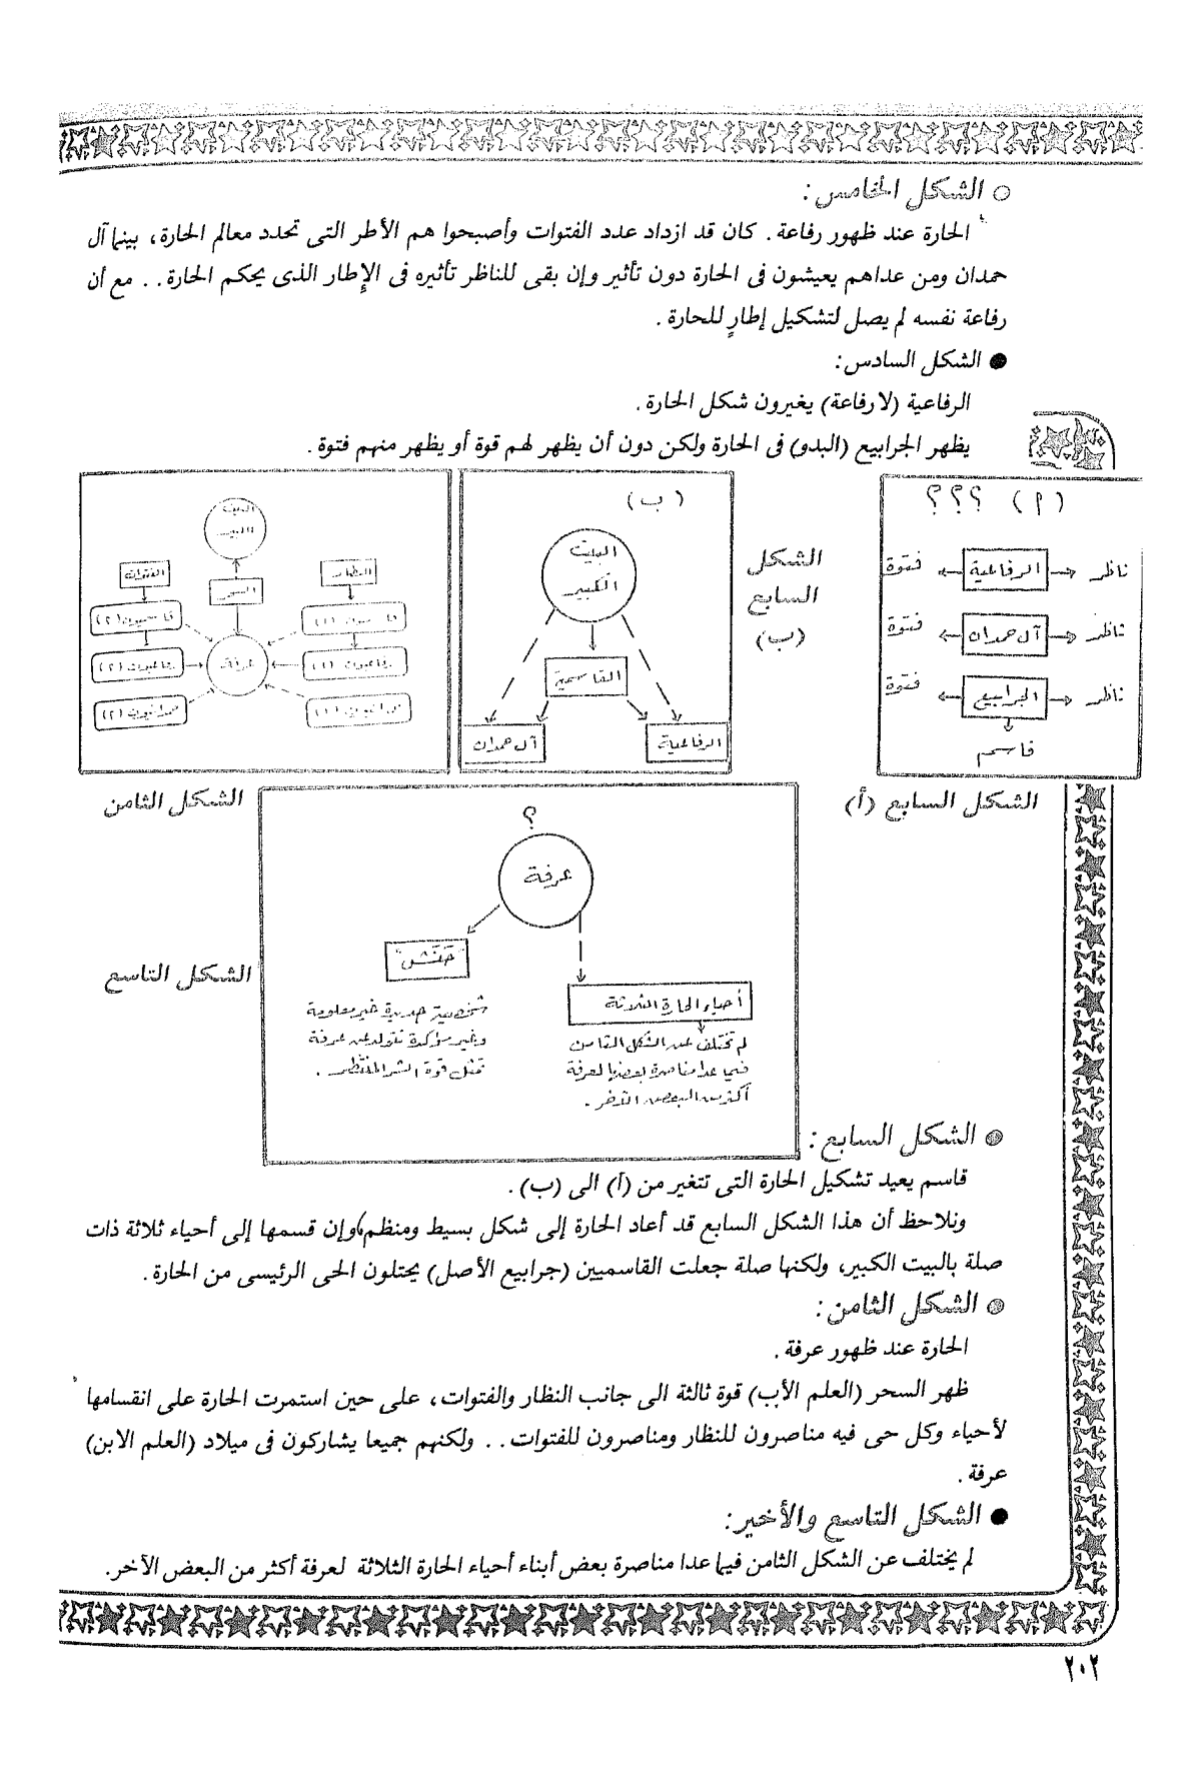 ○ الشكل الخامس :
الحارة عند ظهور رفاعة . كان قد ازداد عدد الفتوات وأصبحوا هم الأطر التى تحدد معالم الحارة ، بينما آل
حمدان ومن عداهم يعيشون فى الحارة دون تأثير وإن بقى للناظر تأثيره فى الإطار الذى يحكم الحارة . . مع أن
رفاعة نفسه لم يصل لتشكيل إطارٍ للحارة .
● الشكل السادس :
الرفاعية (لا رفاعة) يغيرون شكل الحارة .
يظهر الجرابيع (البدو) فى الحارة ولكن دون أن يظهر لهم قوة أو يظهر منهم فتوة .
(أ) ؟؟؟
ناظر الرفاعية فتوة
ناظر آل حمدان فتوة
ناظر الجرابيع فتوة
قاسم
الشكل السابع (أ)
الشكل
السابع
(ب)
(ب)
البيت
الكبير
القاسمية
الرفاعية
آل حمدان
البيت
الكبير
النظار
السحر
الفتوات
قاسميون (١)
قاسميون (٢)
عرفة
رفاعيون (١)
رفاعيون (٢)
حمدانيون (١)
حمدانيون (٢)
الشكل الثامن
؟
عرفة
"حنش"
أحياء الحارة الثلاثة
شخصية جديدة غير معلومة
وغير مؤكدة تتولد عن عرفة
تمثل قوة الشر المنتظر .
لم تختلف عن الشكل الثامن
فيما عدا مناصرة بعضها لعرفة
أكثر من البعض الآخر .
الشكل التاسع
● الشكل السابع :
قاسم يعيد تشكيل الحارة التى تتغير من (أ) الى (ب) .
ونلاحظ أن هذا الشكل السابع قد أعاد الحارة إلى شكل بسيط ومنظم، وإن قسمها إلى أحياء ثلاثة ذات
صلة بالبيت الكبير، ولكنها صلة جعلت القاسميين (جرابيع الأصل) يحتلون الحى الرئيسى من الحارة .
● الشكل الثامن :
الحارة عند ظهور عرفة .
ظهر السحر (العلم الأب) قوة ثالثة الى جانب النظار والفتوات ، على حين استمرت الحارة على انقسامها
لأحياء وكل حى فيه مناصرون للنظار ومناصرون للفتوات . . ولكنهم جميعا يشاركون فى ميلاد (العلم الابن)
عرفة .
● الشكل التاسع والأخير :
لم يختلف عن الشكل الثامن فيما عدا مناصرة بعض أبناء أحياء الحارة الثلاثة لعرفة أكثر من البعض الآخر.
٢٠٢